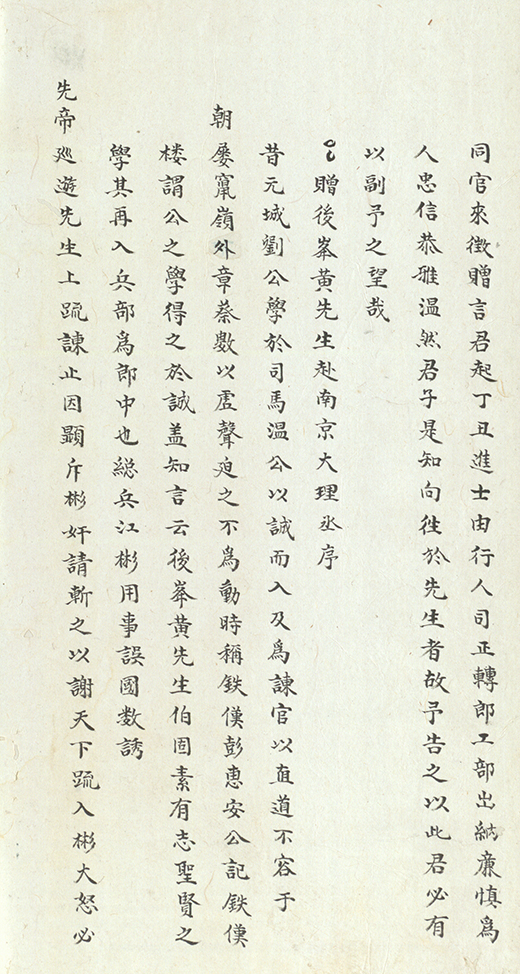 同官來徵贈言君起丁丑進士由行人司正轉郎工部出納廉慎爲
人忠信恭雅温然君子是知向徃於先生者故予告之以此君必有
以副予之望哉
贈後峯黃先生赴南京大理丞序
昔元城劉公學於司馬温公以誠而入及爲諫官以直道不容于
朝屢竄嶺外章蔡數以虚聲廹之不爲動時稱鉄僕彭惠安公記鉄僕
楼謂公之學得之於誠盖知言云後峯黃先生伯固素有志聖賢之
學其再入兵部爲郎中也総兵江彬用事誤國数誘
先帝廵遊先生上䟽諫止因顯斥彬奸請斬之以謝天下䟽入彬大怒必